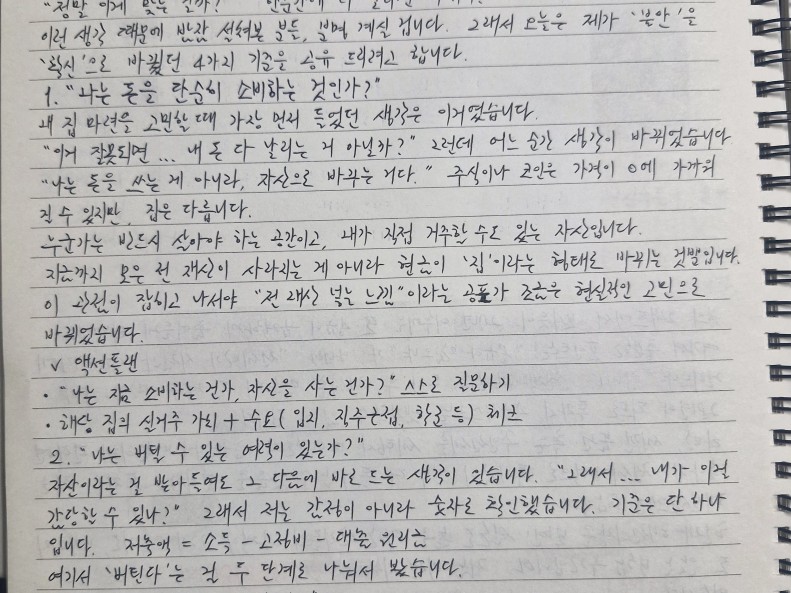 "정말 이게 맞는 걸까?"
이런 생각 때문에 밤잠 설쳐본 분들, 분명 계실 겁니다. 그래서 오늘은 제가 '불안'을
'확신'으로 바꿨던 4가지 기준을 공유 드리려고 합니다.
1. "나는 돈을 단순히 소비하는 것인가?"
내 집 마련을 고민할 때 가장 먼저 들었던 생각은 이거였습니다.
"이거 잘못되면 ... 내 돈 다 날리는 거 아닐까?" 그런데 어느 순간 생각이 바뀌었습니다
"나는 돈을 쓰는 게 아니라, 자산으로 바꾸는 거다." 주식이나 코인은 가격이 0에 가까워
질 수 있지만, 집은 다릅니다.
누군가는 반드시 살아야 하는 공간이고, 내가 직접 거주할 수도 있는 자산입니다.
지금까지 모은 전 재산이 사라지는 게 아니라 현금이 '집'이라는 형태로 바뀌는 것뿐입니다.
이 관점이 잡히고 나서야 "전 재산 넣는 느낌"이라는 공포가 조금은 현실적인 고민으로
바뀌었습니다.
v 액션플랜
· "나는 지금 소비하는 건가, 자산을 사는 건가?" 스스로 질문하기
· 해당 집의 실거주 가치 + 수요( 입지, 직주근접, 학군 등) 체크
2. "나는 버틸 수 있는 여력이 있는가?"
자산이라는 걸 받아들여도 그 다음에 바로 드는 생각이 있습니다. "그래서 ... 내가 이걸
감당할 수 있나?" 그래서 저는 감정이 아니라 숫자로 확인했습니다. 기준은 단 하나
입니다. 저축액 = 소득 - 고정비 - 대출 원리금
여기서 '버틴다'는 걸 두 단계로 나눠서 봤습니다.